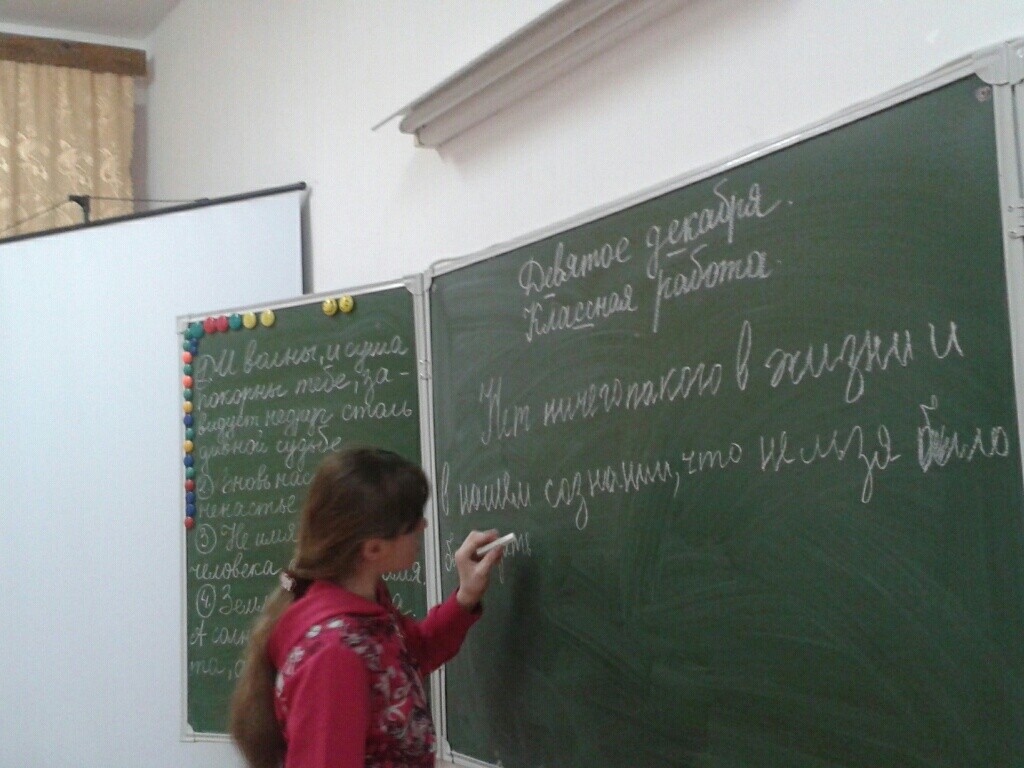 ① И волны, и суша
покорны тебе, за-
видует недруг столь
дивной судьбе
② вновь нас
ненастье
③ Не имя
человека имя.
④ Земл а.
А солн
та,
Девятое декабря.
Классная работа.
Нет ничего такого в жизни и
в нашем сознании, что нельзя было
бы